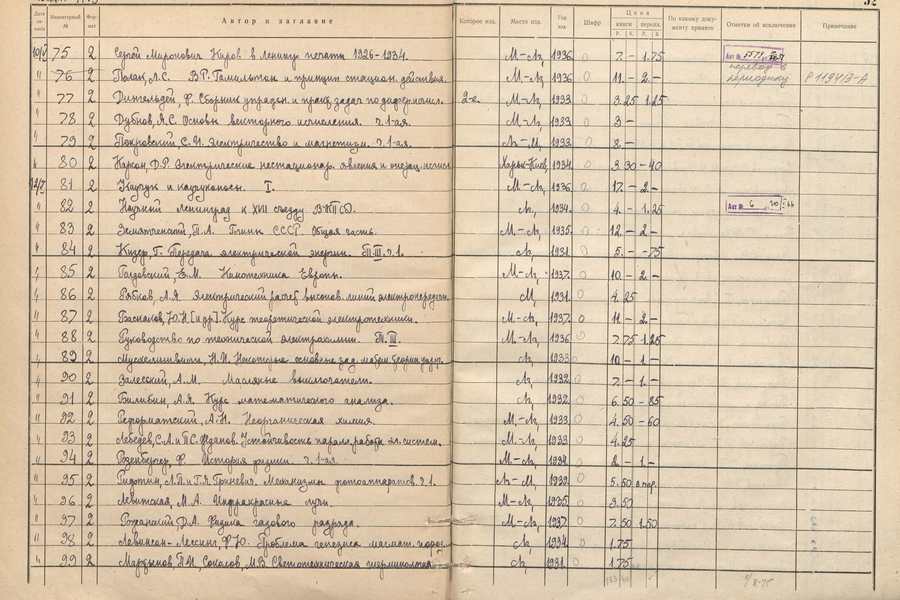 Дата записи Инвентарный № Формат Автор и заглавие Которое изд. Место изд. Год изд. Шифр Цена книги перепл. Р. К. Р. К. По какому документу принято Отметки об исключении Примечание
75 2 Сергей Миронович Киров в ленингр. печати 1926-1934. М.-Л. 1936 7.- 1.75 Акт №
" 76 2 Полак, Л.С. В.Р. Гамильтон и принцип стацион. действия. М.-Л. 1936 11.- 2.- перевод в периодику
" 77 2 Сборник упражн. и практ. задач по 2-е. М-Л, 1933 3.25 1.25
" 78 2 Дубнов, Я.С. Основы векторного исчисления. ч.1-ая. М-Л, 1933 3-
" 79 2 Покровский, С.И. Электричество и магнетизм. ч.1-ая. Л-М, 1933 2.-
80 2 Карсон, Д.Р. Электрические нестационар. явления и операц. исчисл. Харьк-Киев, 1934 3.30 -40
81 2 Каучук и каучуконосы. I. М-Л, 1936 17.- 2.-
" 82 2 Научный Ленинград к XVII съезду ВКП(б). Л, 1934 4.- 1.25 Акт № 6
" 83 2 Земятченский, П.А. Глины СССР. Общая часть. М-Л, 1935 12.- 2-
" 84 2 Кизер, Г. Передача электрической энергии. Т.III. ч.1. Л, 1931 5.- -75
" 85 2 Кинотехника Европы. М-Л, 1937 10.- 2.-
" 86 2 Рябков, А.Я Электрический расчет высоков. линий электропередачи М, 1931 4.25
" 87 2 [и др.] Курс теоретической электротехники. М-Л, 1937 11.- 2.-
" 88 2 Руководство по технической электрохимии. Т.III. М.-Л, 1936 7.75 1.25
" 89 2 Мусхелишвили, Н.И. Некоторые основные зад. матем. теории упруг. Л, 1933 10.- 1-
" 90 2 Залесский, А.М. Масляные выключатели. Л, 1932 7.- 1.-
" 91 2 Билибин, А.Я. Курс математического анализа. Л, 1932 6.50 -85
" 92 2 Реформатский, А.Н. Неорганическая химия. М,-Л, 1933 4.50 -60
" 93 2 Лебедев, С.А. и П.С. Жданов. Устойчивость паралл. работы эл. систем. М-Л, 1933 4.25
" 94 2 Розенбергер, Ф. История физики. ч.1-ая. М-Л, 1934 2- 1.-
" 95 2 и Г.Я. Гриневич. Механизмы фотоаппаратов. ч.1. Л-М, 5.50
" 96 2 Левитская, М.А. Инфракрасные лучи. М-Л, 1935 3.50
" 97 2 Рожанский, Д.А. Физика газового разряда. М-Л, 1937 7.50 1.50
" 98 2 Левинсон-Лессинг, Ф.Ю. Проблема генезиса магмат. пород. Л, 1934 1.75
" 99 2 Соколов, М.В. Светотехническая терминология Л, 1931 1.75